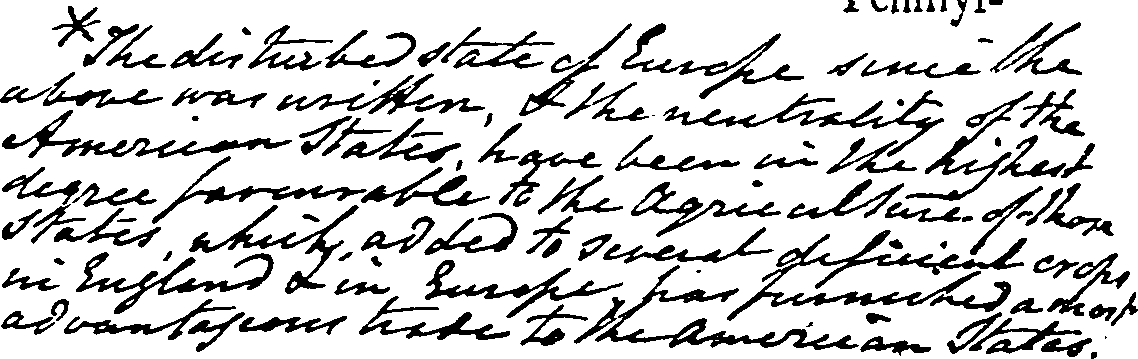 Pennsyl-
*The disturbed state of Europe since the
above was written, & the neutrality of the
American States, have been in the highest
degree favourable to the Agriculture of those
States, which, added to several deficient crops
in England & in Europe, has furnished a most
advantageous trade to the American States.